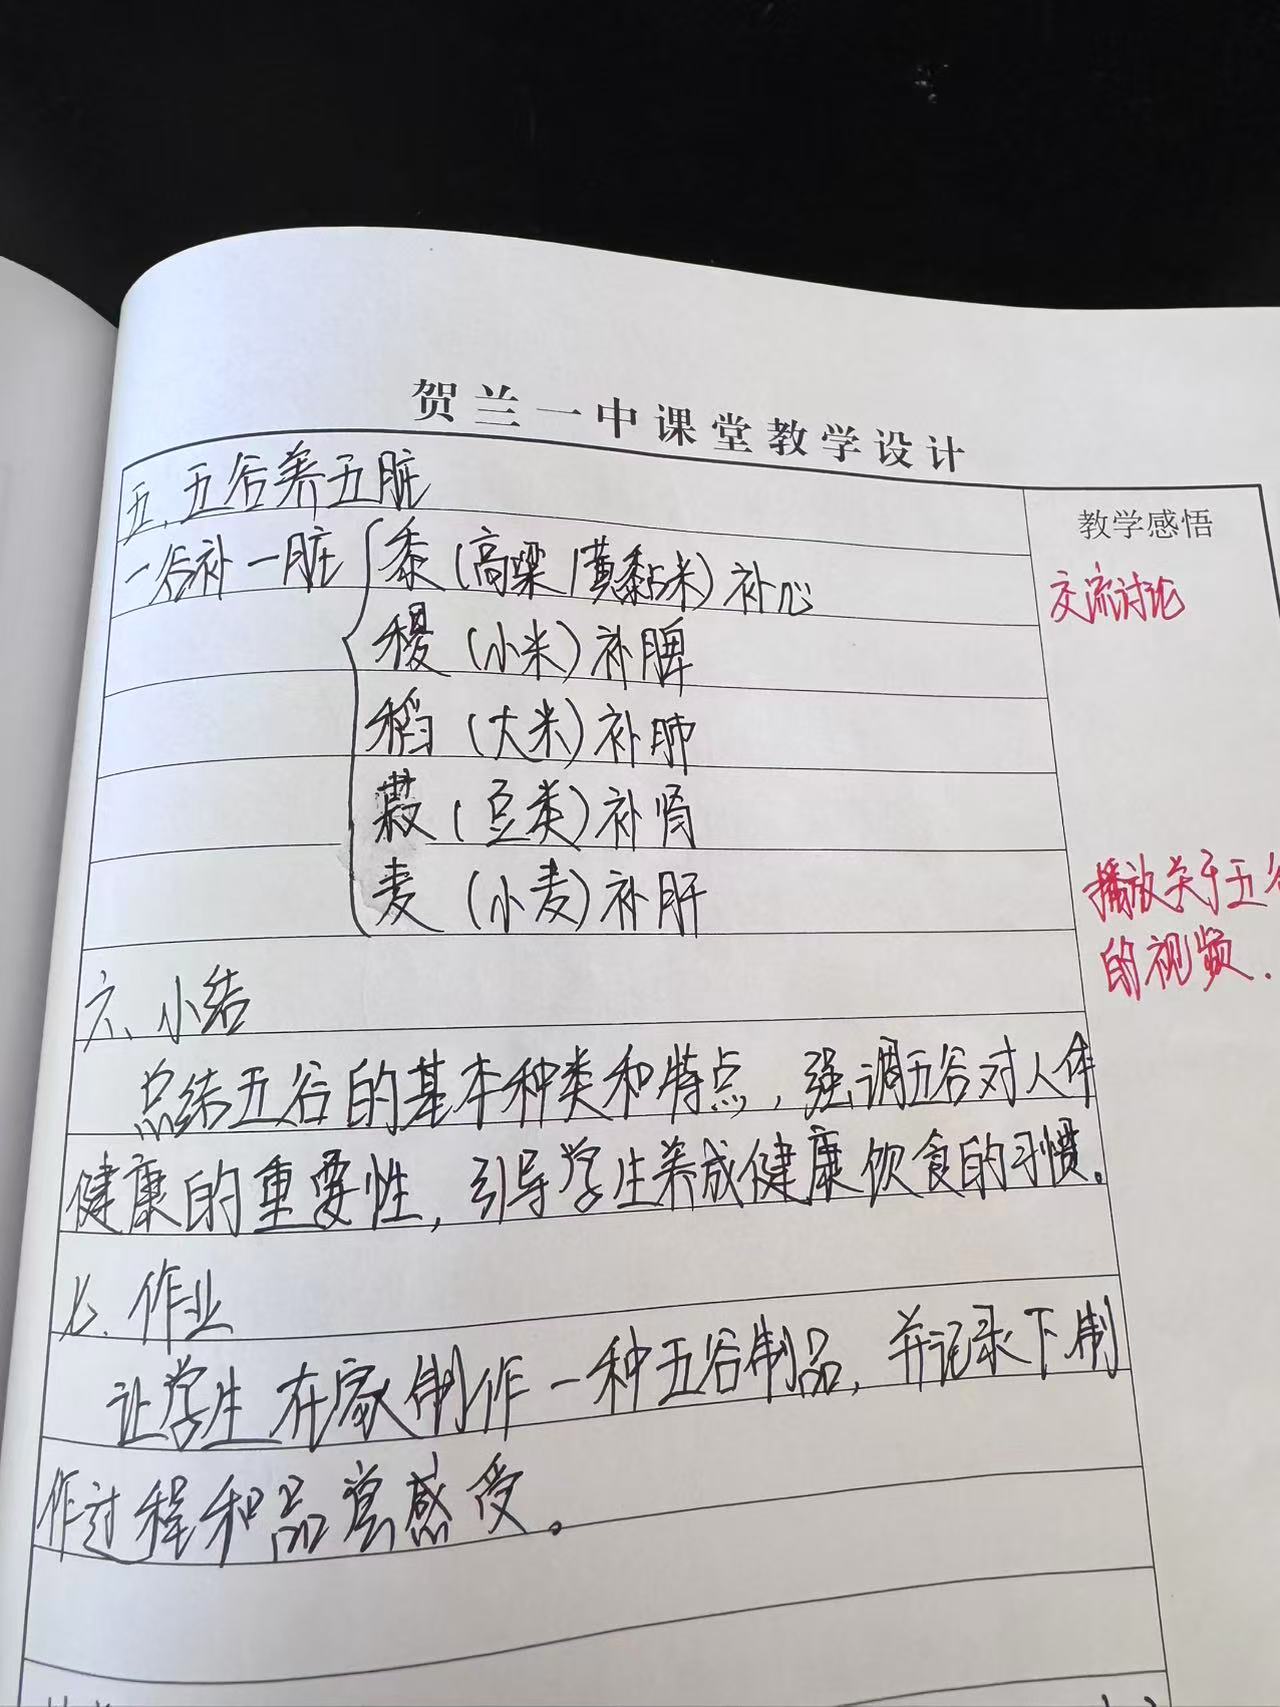 贺兰一中课堂教学设计
五、五谷养五脏
教学感悟
一谷补一脏 黍(高粱/黄黏米)补心
交流讨论
稷(小米)补脾
稻(大米)补肺
菽(豆类)补肾
麦(小麦)补肝
播放关于五谷
的视频.
六、小结
总结五谷的基本种类和特点,强调五谷对人体
健康的重要性,引导学生养成健康饮食的习惯。
七、作业
让学生在家制作一种五谷制品,并记录下制
作过程和品尝感受。